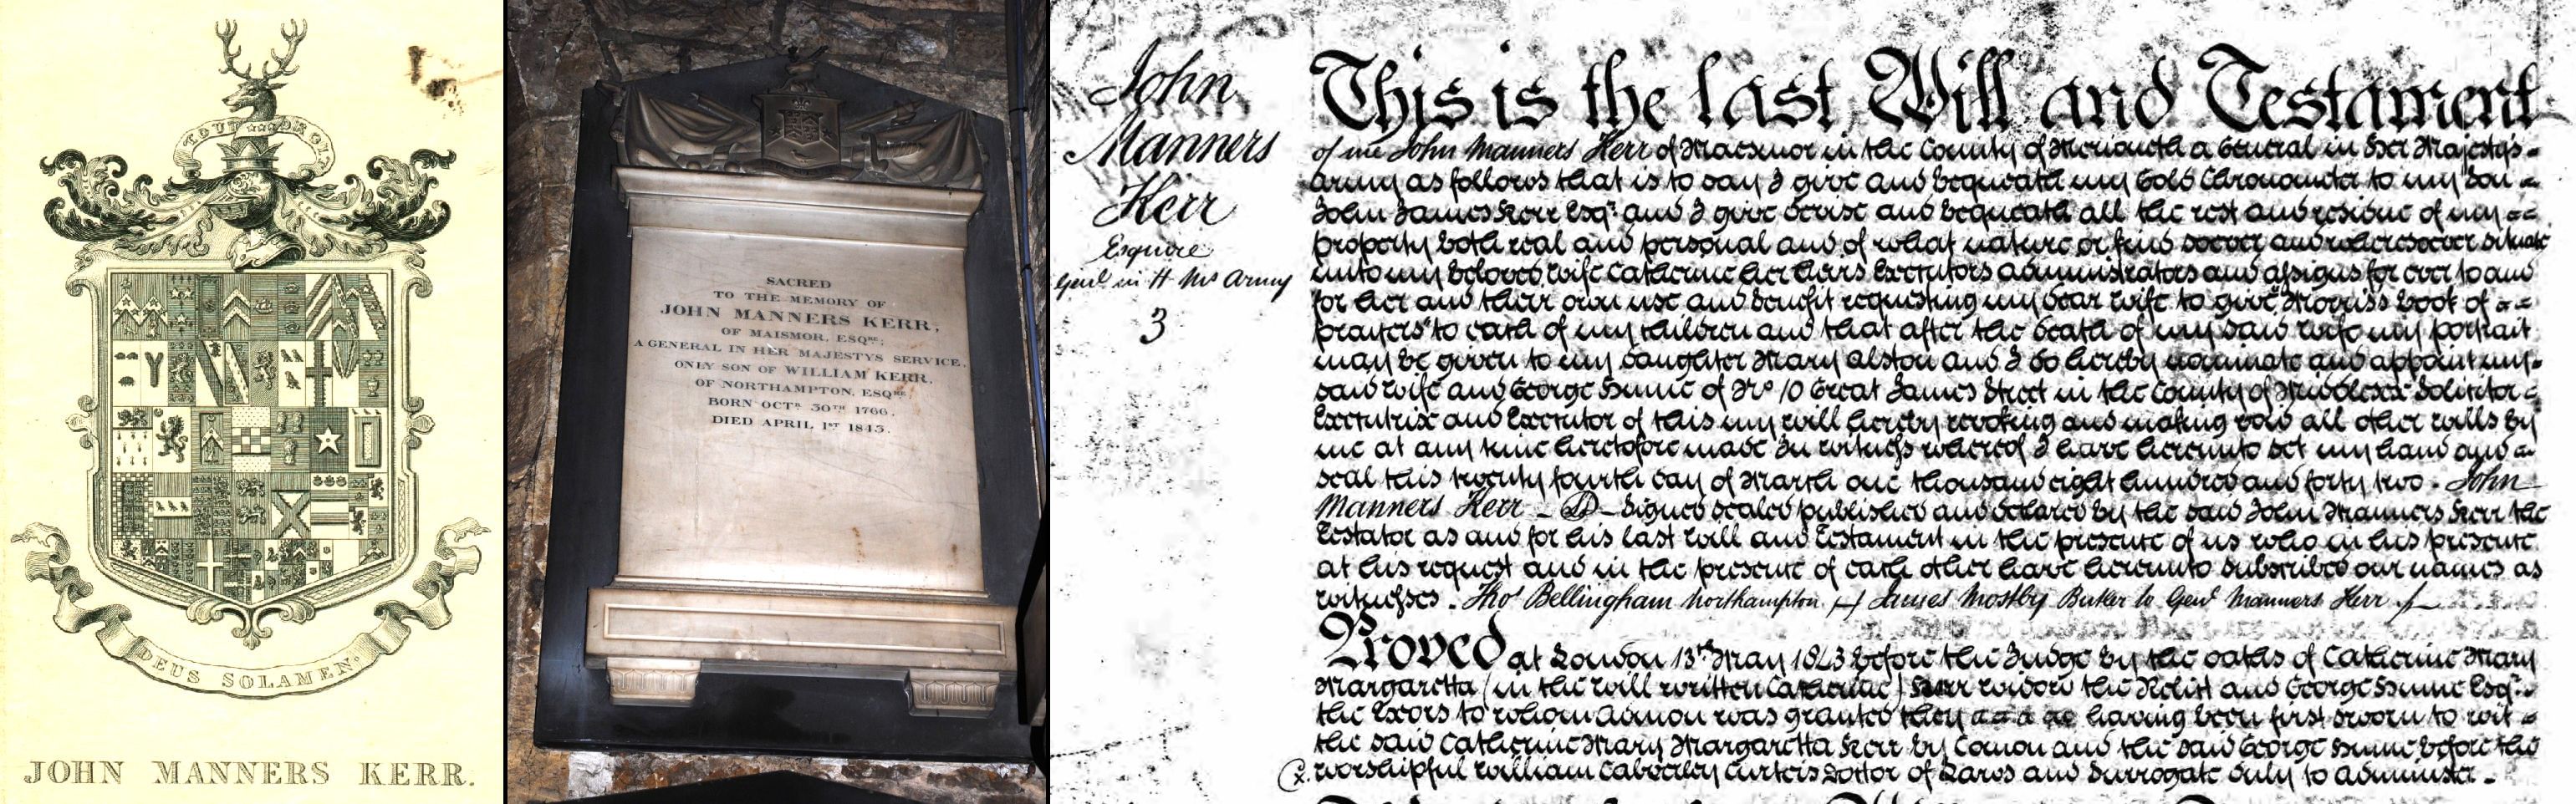 TOUT DROIT
DEUS SOLAMEN.
JOHN MANNERS KERR.
SACRED
TO THE MEMORY OF
JOHN MANNERS KERR,
OF MAISMOR, ESQRE;
A GENERAL IN HER MAJESTYS SERVICE,
ONLY SON OF WILLIAM KERR,
OF NORTHAMPTON, ESQRE
BORN OCTR 30TH 1766,
DIED APRIL 1ST 1843.
John
Manners
Kerr
Esquire
Genl in H Ms Army
3
This is the last Will and Testament
of me John Manners Kerr of Maesmor in the County of Merioneth a General in Her Majesty's
Army as follows that is to say I give and bequeath my Gold Chronometer to my Son
John James Kerr Esqr and I give devise and bequeath all the rest and residue of my
property both real and personal and of what nature or kind soever and wheresoever situate
unto my beloved wife Catherine her heirs Executors administrators and assigns for ever to and
for her and their own use and benefit requesting my dear wife to give "Morris's book of
prayers" to each of my children and that after the death of my said wife my portrait
may be given to my daughter Mary Alston and I do hereby nominate and appoint my
said wife and George Hume of No 10 Great James Street in the County of Middlesex Solicitor
Executrix and Executor of this my will hereby revoking and making void all other wills by
me at any time heretofore made In witness whereof I have hereunto set my hand and
seal this twenty fourth day of March one thousand eight hundred and forty two - John
Manners Kerr - Signed sealed published and declared by the said John Manners Kerr the
Testator as and for his last will and testament in the presence of us who in his presence
at his request and in the presence of each other have hereunto subscribed our names as
witnesses. Thos Bellingham Northampton - James Mostby Butler to Genl Manners Kerr
Proved at London 13th May 1843 before the Judge by the oaths of Catherine Mary
Margaretta (in the will written Catherine) Kerr widow the Relict and George Hume Esqr
the Exors to whom admon was granted they having been first sworn to wit
the said Catherine Mary Margaretta Kerr by Comon and the said George Hume before the
worshipful William Calverley Curteis Doctor of Laws and Surrogate duly to administer -